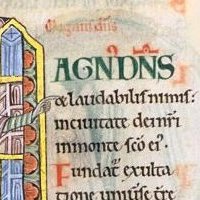 Magnus dns
AGN'DN̄S
& laudabilis nimis:
inciuitate dei nr̄i
inmonte scō ei'.
Fundat' exulta
tione uniuīse tr̄e